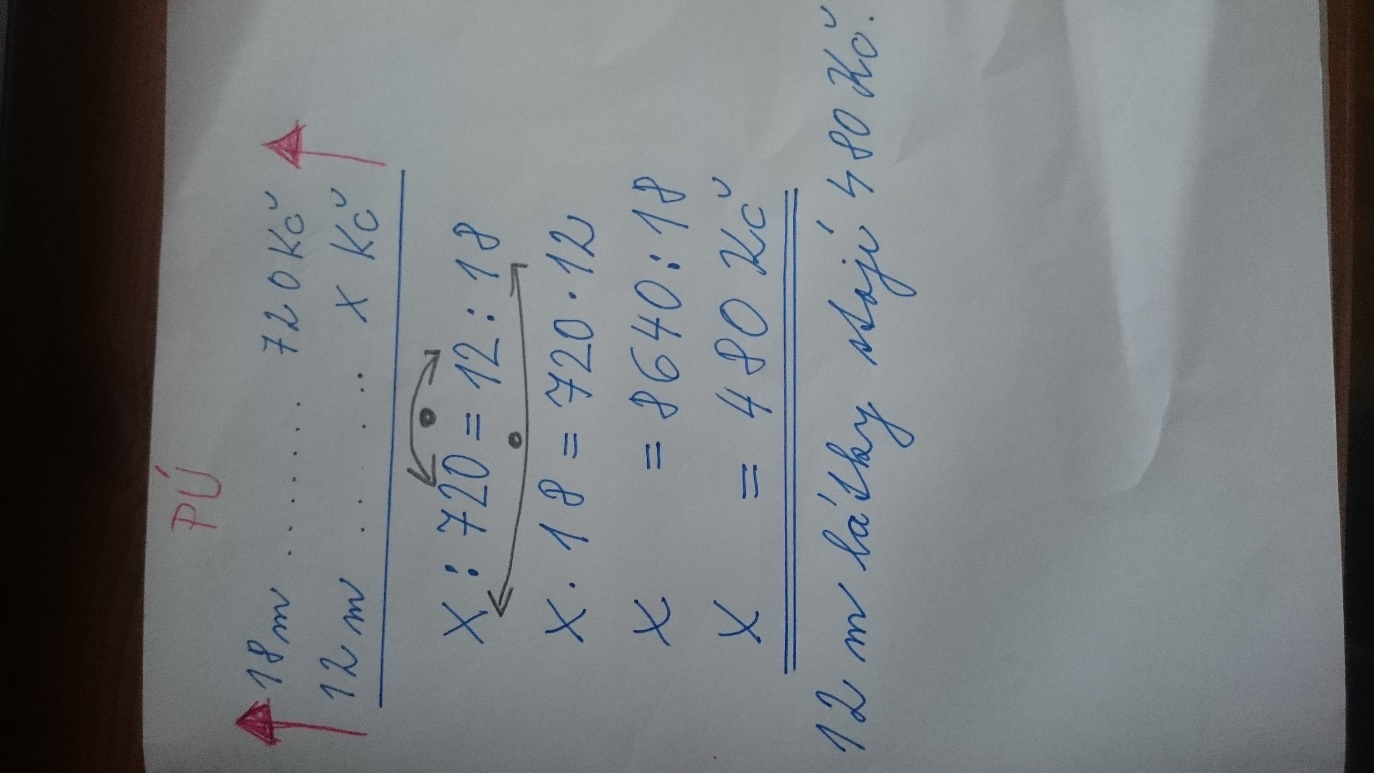 PÚ
18m ....... 720Kč
12 m .. .. .. X Kč
X : 720 = 12 : 18
X . 18 = 720 . 12
X = 8640 : 18
X = 480 Kč
12 m látky stojí 480 Kč.